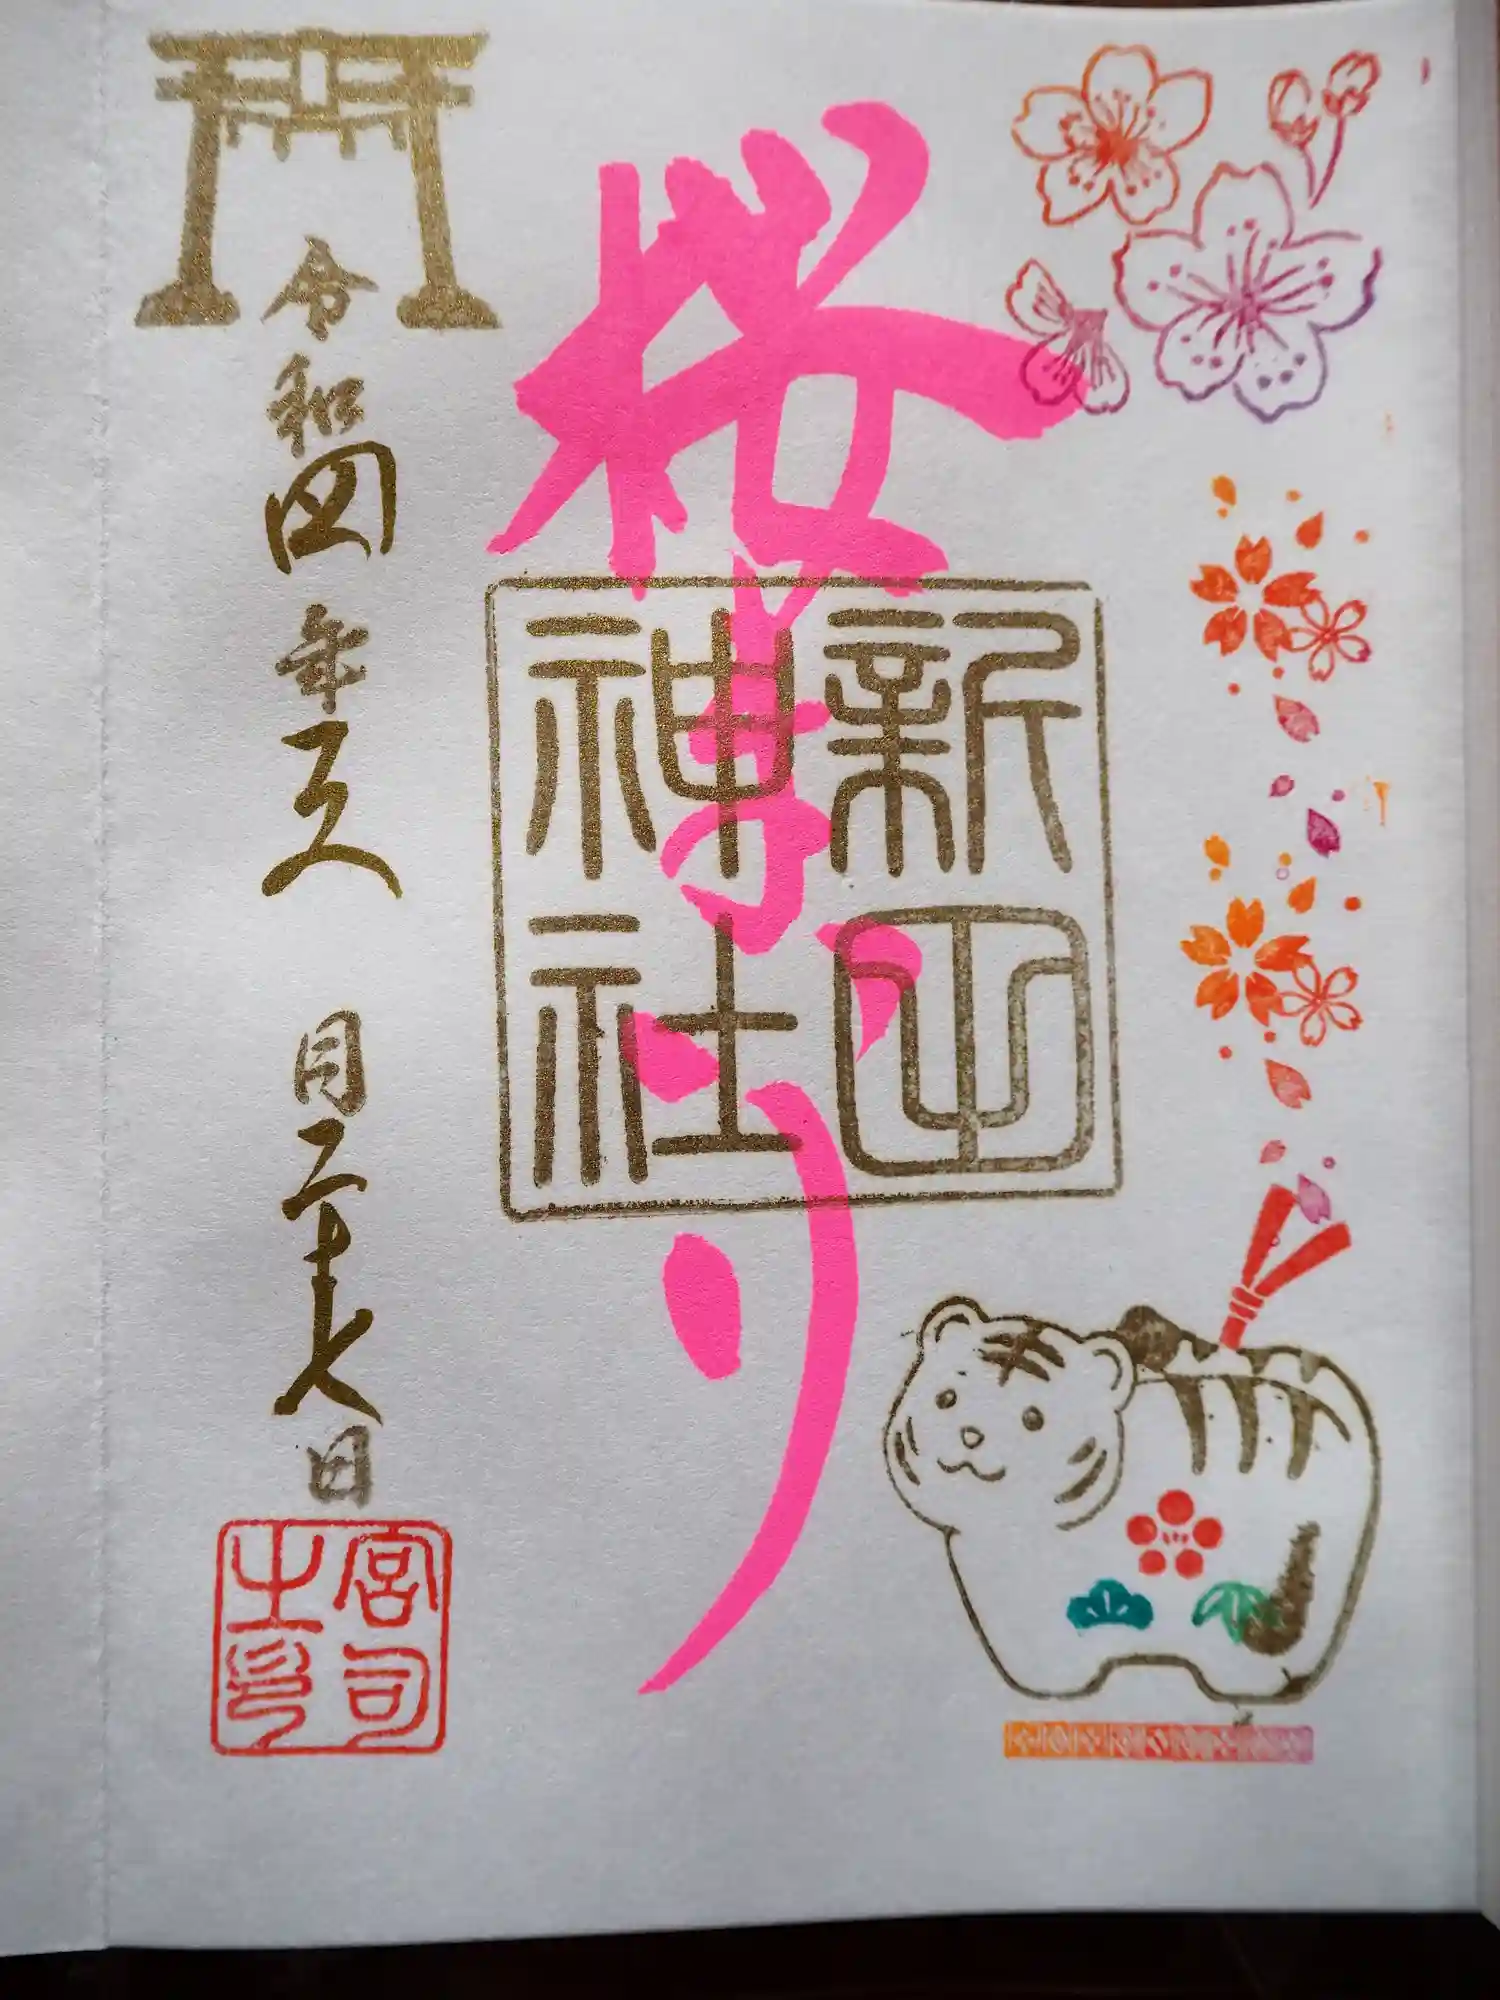 桜まつり
新山
神社
令和四年三月二十七日
宮司
之印